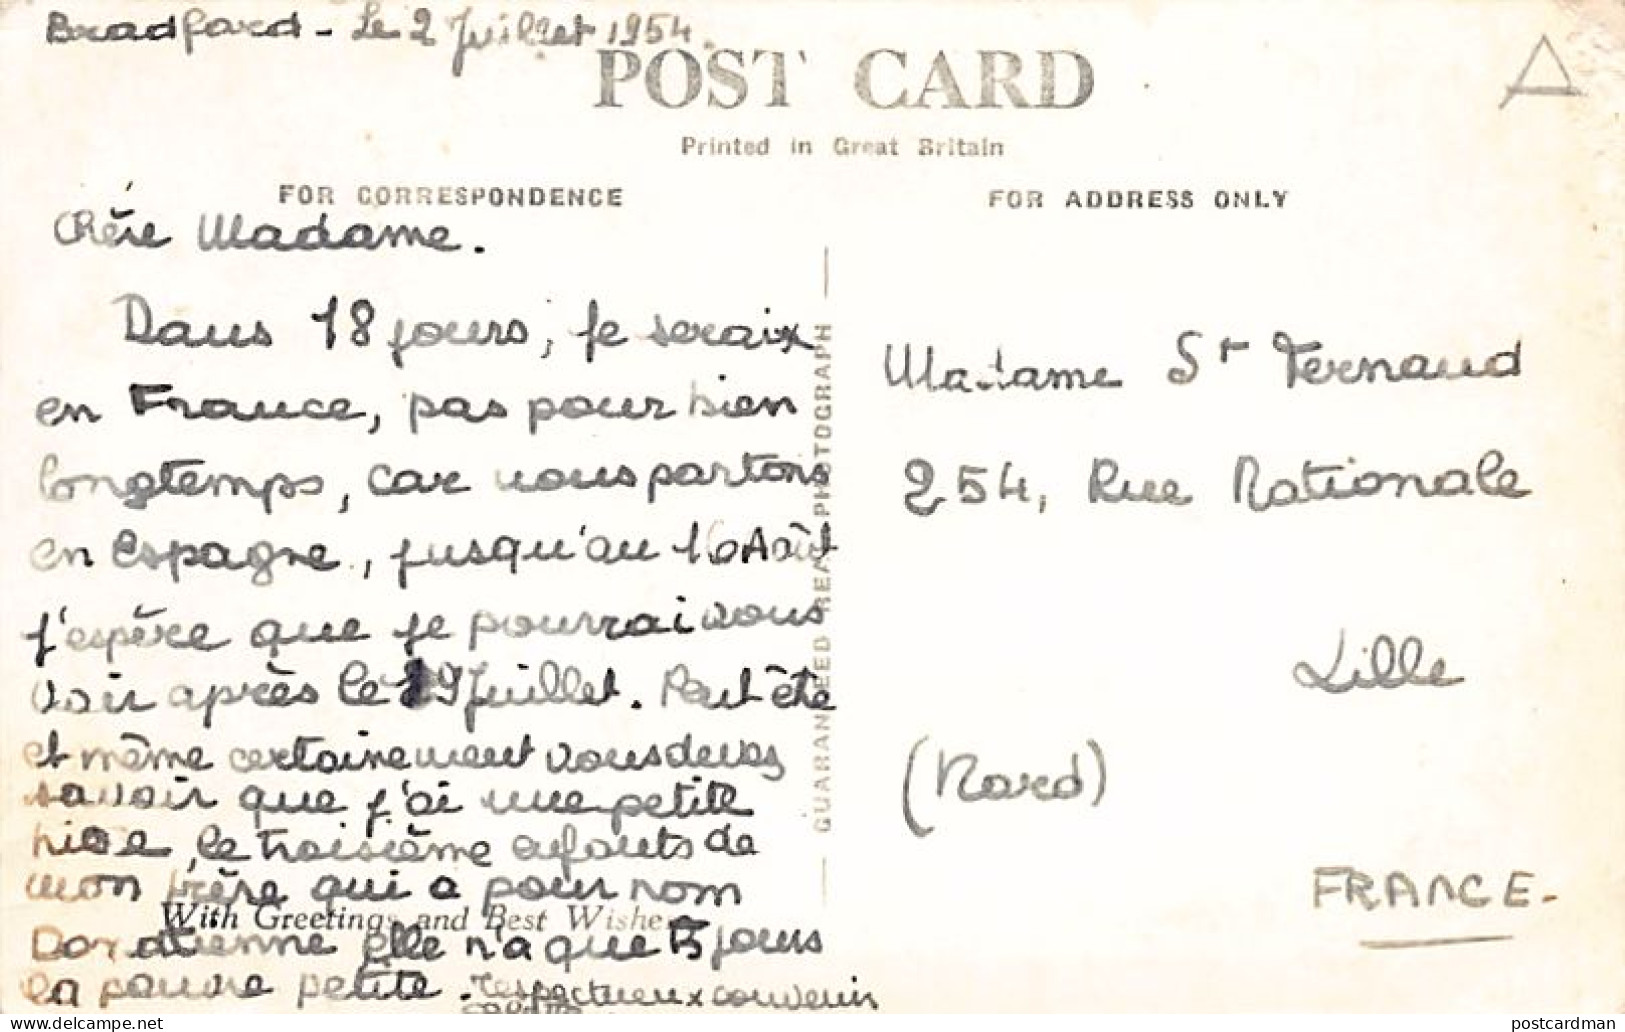 Bradford - Le 2 Juillet 1954.
POST CARD
Printed in Great Britain
FOR CORRESPONDENCE
FOR ADDRESS ONLY
Chére Madame.
Dans 18 jours, je seraix
en France, pas pour bien
longtemps, car nous partons
en Espagne, jusqu'au 16 Août
j'espère que je pourrai vous
voir après le 19 Juillet. Peut ète
et même certainement vous devez
savoir que j'ai une petite
nièce, le troisième enfants de
mon frère qui a pour nom
elle n'a que 5 jours
la pauvre petite. respectueux souvenir
With Greetings and Best Wishes
GUARANTEED REAL PHOTOGRAPH
Madame St Fernand
254, Rue Nationale
Lille
(Nord)
FRANCE.
delcampe.net
postcardman